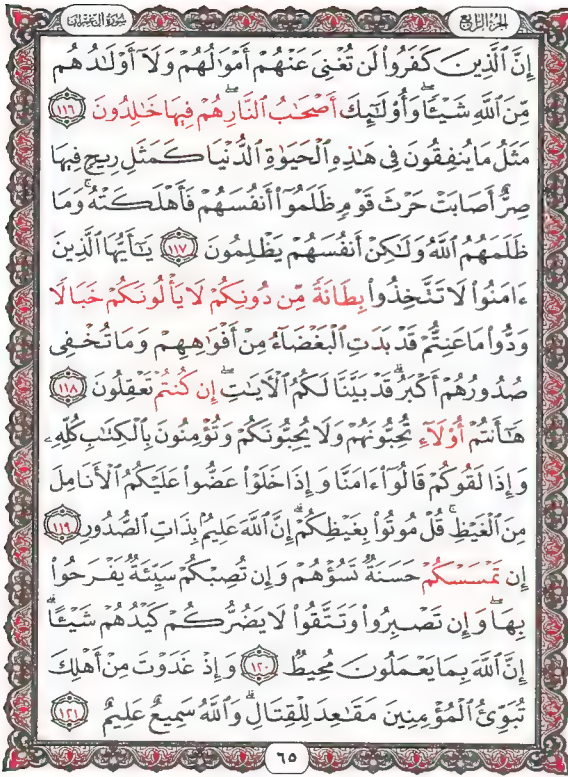 الجزء الرابع
سورة آل عمران
إِنَّ ٱلَّذِينَ كَفَرُوا۟ لَن تُغْنِىَ عَنْهُمْ أَمْوَٰلُهُمْ وَلَآ أَوْلَـٰدُهُم
مِّنَ ٱللَّهِ شَيْـًٔا ۖ وَأُو۟لَـٰٓئِكَ أَصْحَـٰبُ ٱلنَّارِ ۖ هُمْ فِيهَا خَـٰلِدُونَ ١١٦
مَثَلُ مَا يُنفِقُونَ فِى هَـٰذِهِ ٱلْحَيَوٰةِ ٱلدُّنْيَا كَمَثَلِ رِيحٍ فِيهَا
صِرٌّ أَصَابَتْ حَرْثَ قَوْمٍ ظَلَمُوٓا۟ أَنفُسَهُمْ فَأَهْلَكَتْهُ ۚ وَمَا
ظَلَمَهُمُ ٱللَّهُ وَلَـٰكِنْ أَنفُسَهُمْ يَظْلِمُونَ ١١٧ يَـٰٓأَيُّهَا ٱلَّذِينَ
ءَامَنُوا۟ لَا تَتَّخِذُوا۟ بِطَانَةً مِّن دُونِكُمْ لَا يَأْلُونَكُمْ خَبَالًا
وَدُّوا۟ مَا عَنِتُّمْ قَدْ بَدَتِ ٱلْبَغْضَآءُ مِنْ أَفْوَٰهِهِمْ وَمَا تُخْفِى
صُدُورُهُمْ أَكْبَرُ ۚ قَدْ بَيَّنَّا لَكُمُ ٱلْـَٔايَـٰتِ ۖ إِن كُنتُمْ تَعْقِلُونَ ١١٨
هَـٰٓأَنتُمْ أُو۟لَآءِ تُحِبُّونَهُمْ وَلَا يُحِبُّونَكُمْ وَتُؤْمِنُونَ بِٱلْكِتَـٰبِ كُلِّهِۦ
وَإِذَا لَقُوكُمْ قَالُوٓا۟ ءَامَنَّا وَإِذَا خَلَوْا۟ عَضُّوا۟ عَلَيْكُمُ ٱلْأَنَامِلَ
مِنَ ٱلْغَيْظِ ۚ قُلْ مُوتُوا۟ بِغَيْظِكُمْ ۗ إِنَّ ٱللَّهَ عَلِيمٌۢ بِذَاتِ ٱلصُّدُورِ ١١٩
إِن تَمْسَسْكُمْ حَسَنَةٌ تَسُؤْهُمْ وَإِن تُصِبْكُمْ سَيِّئَةٌ يَفْرَحُوا۟
بِهَا ۖ وَإِن تَصْبِرُوا۟ وَتَتَّقُوا۟ لَا يَضُرُّكُمْ كَيْدُهُمْ شَيْـًٔا ۗ
إِنَّ ٱللَّهَ بِمَا يَعْمَلُونَ مُحِيطٌ ١٢٠ وَإِذْ غَدَوْتَ مِنْ أَهْلِكَ
تُبَوِّئُ ٱلْمُؤْمِنِينَ مَقَـٰعِدَ لِلْقِتَالِ ۗ وَٱللَّهُ سَمِيعٌ عَلِيمٌ ١٢١
٦٥